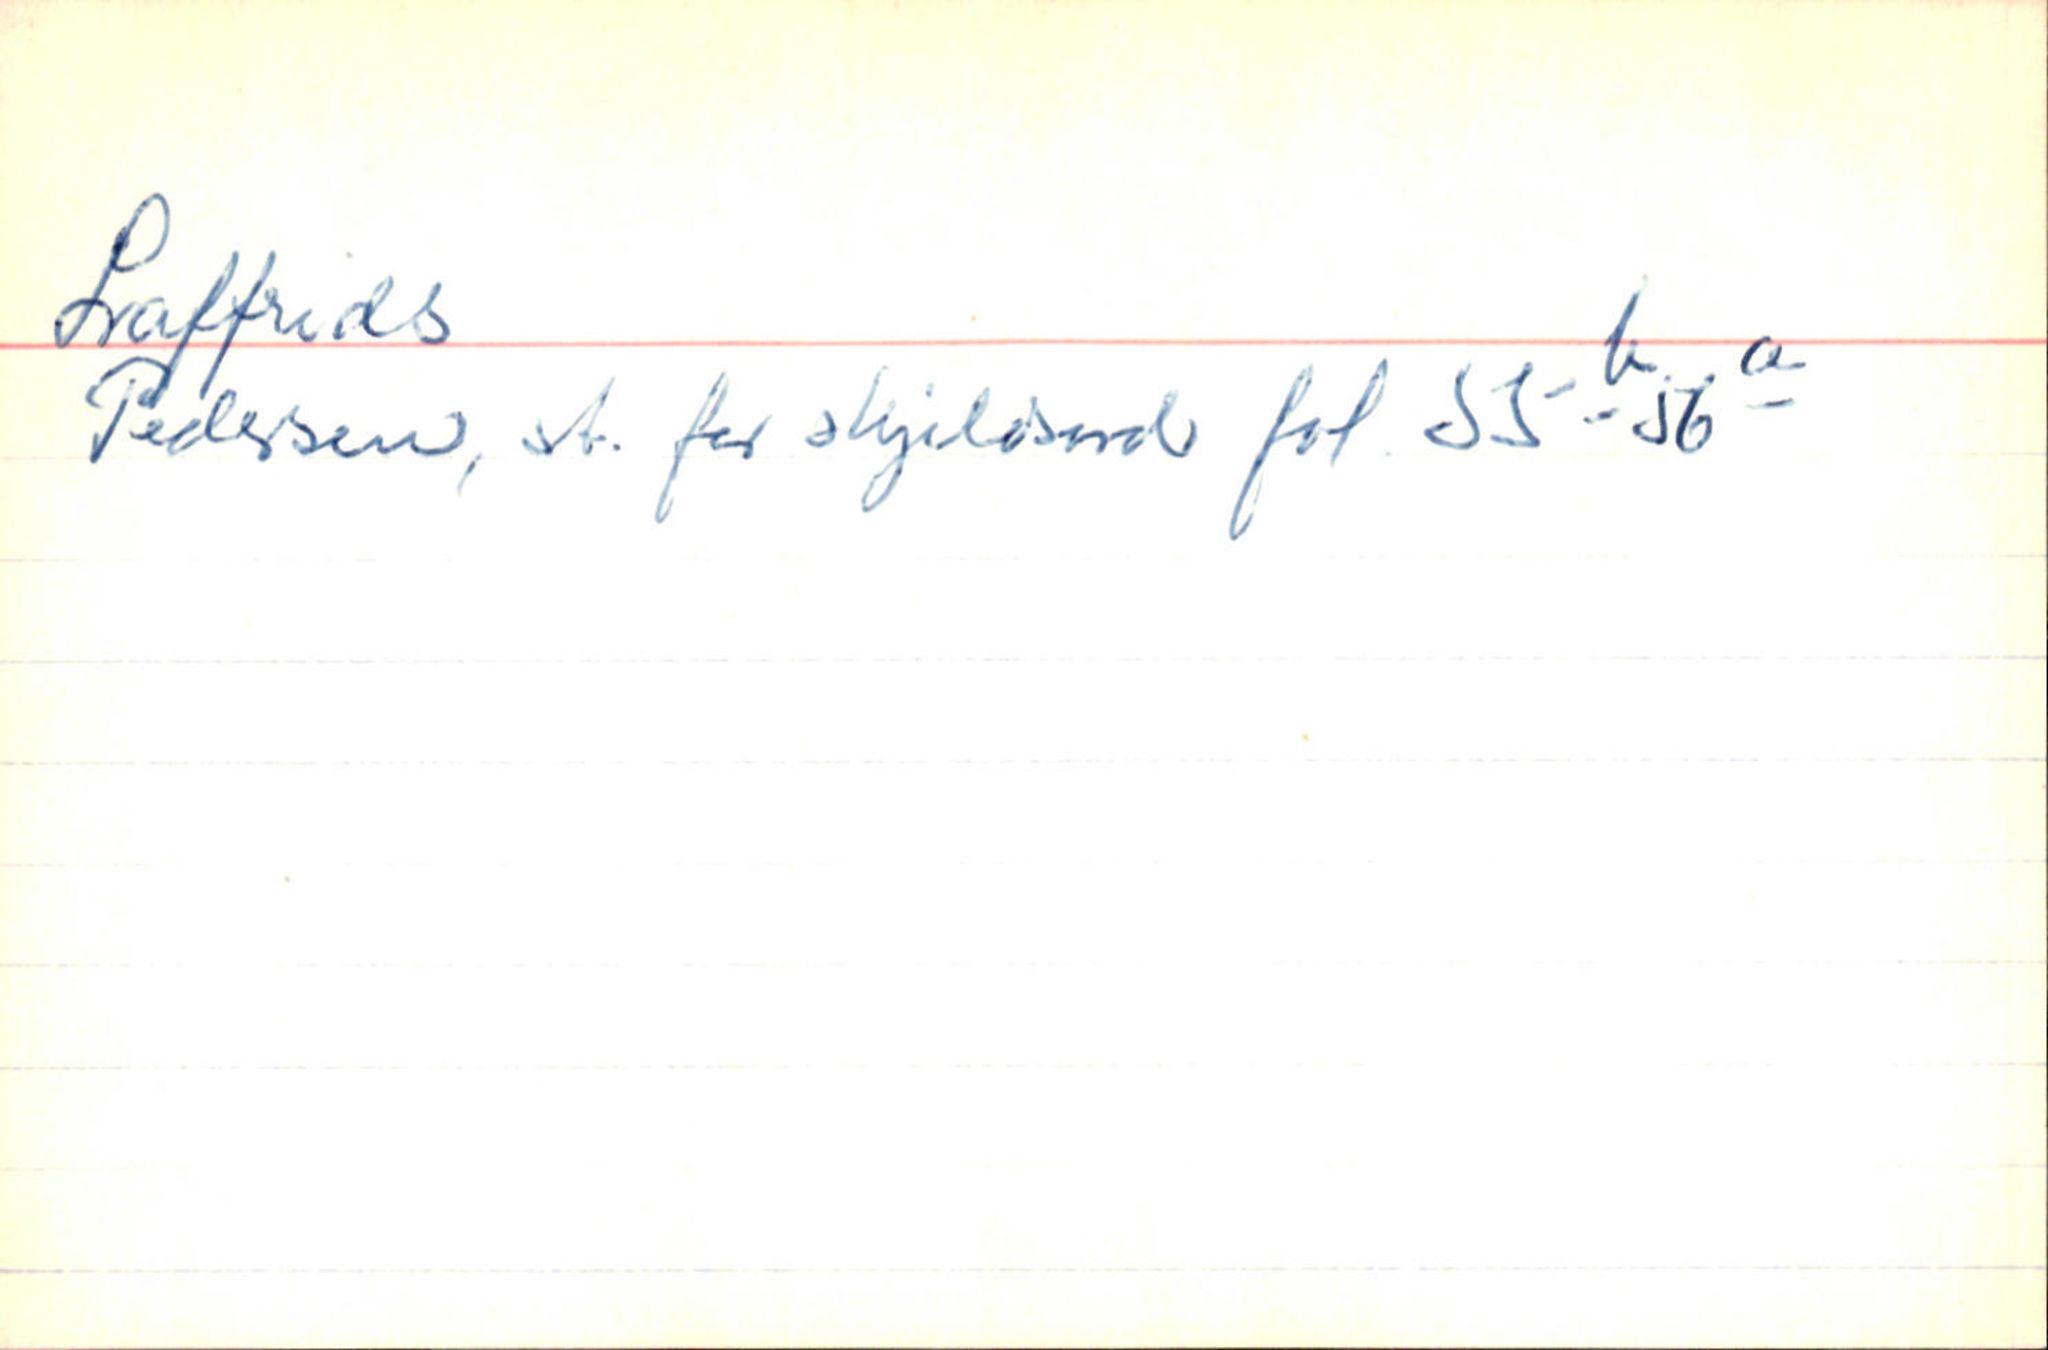 Laffrids
Pedersen, st. for skjeldsord fol. 55b-56a